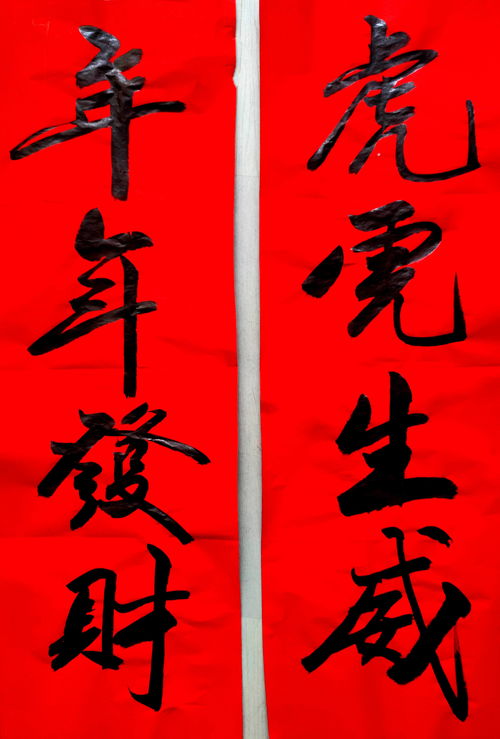 虎虎生威
年年發財